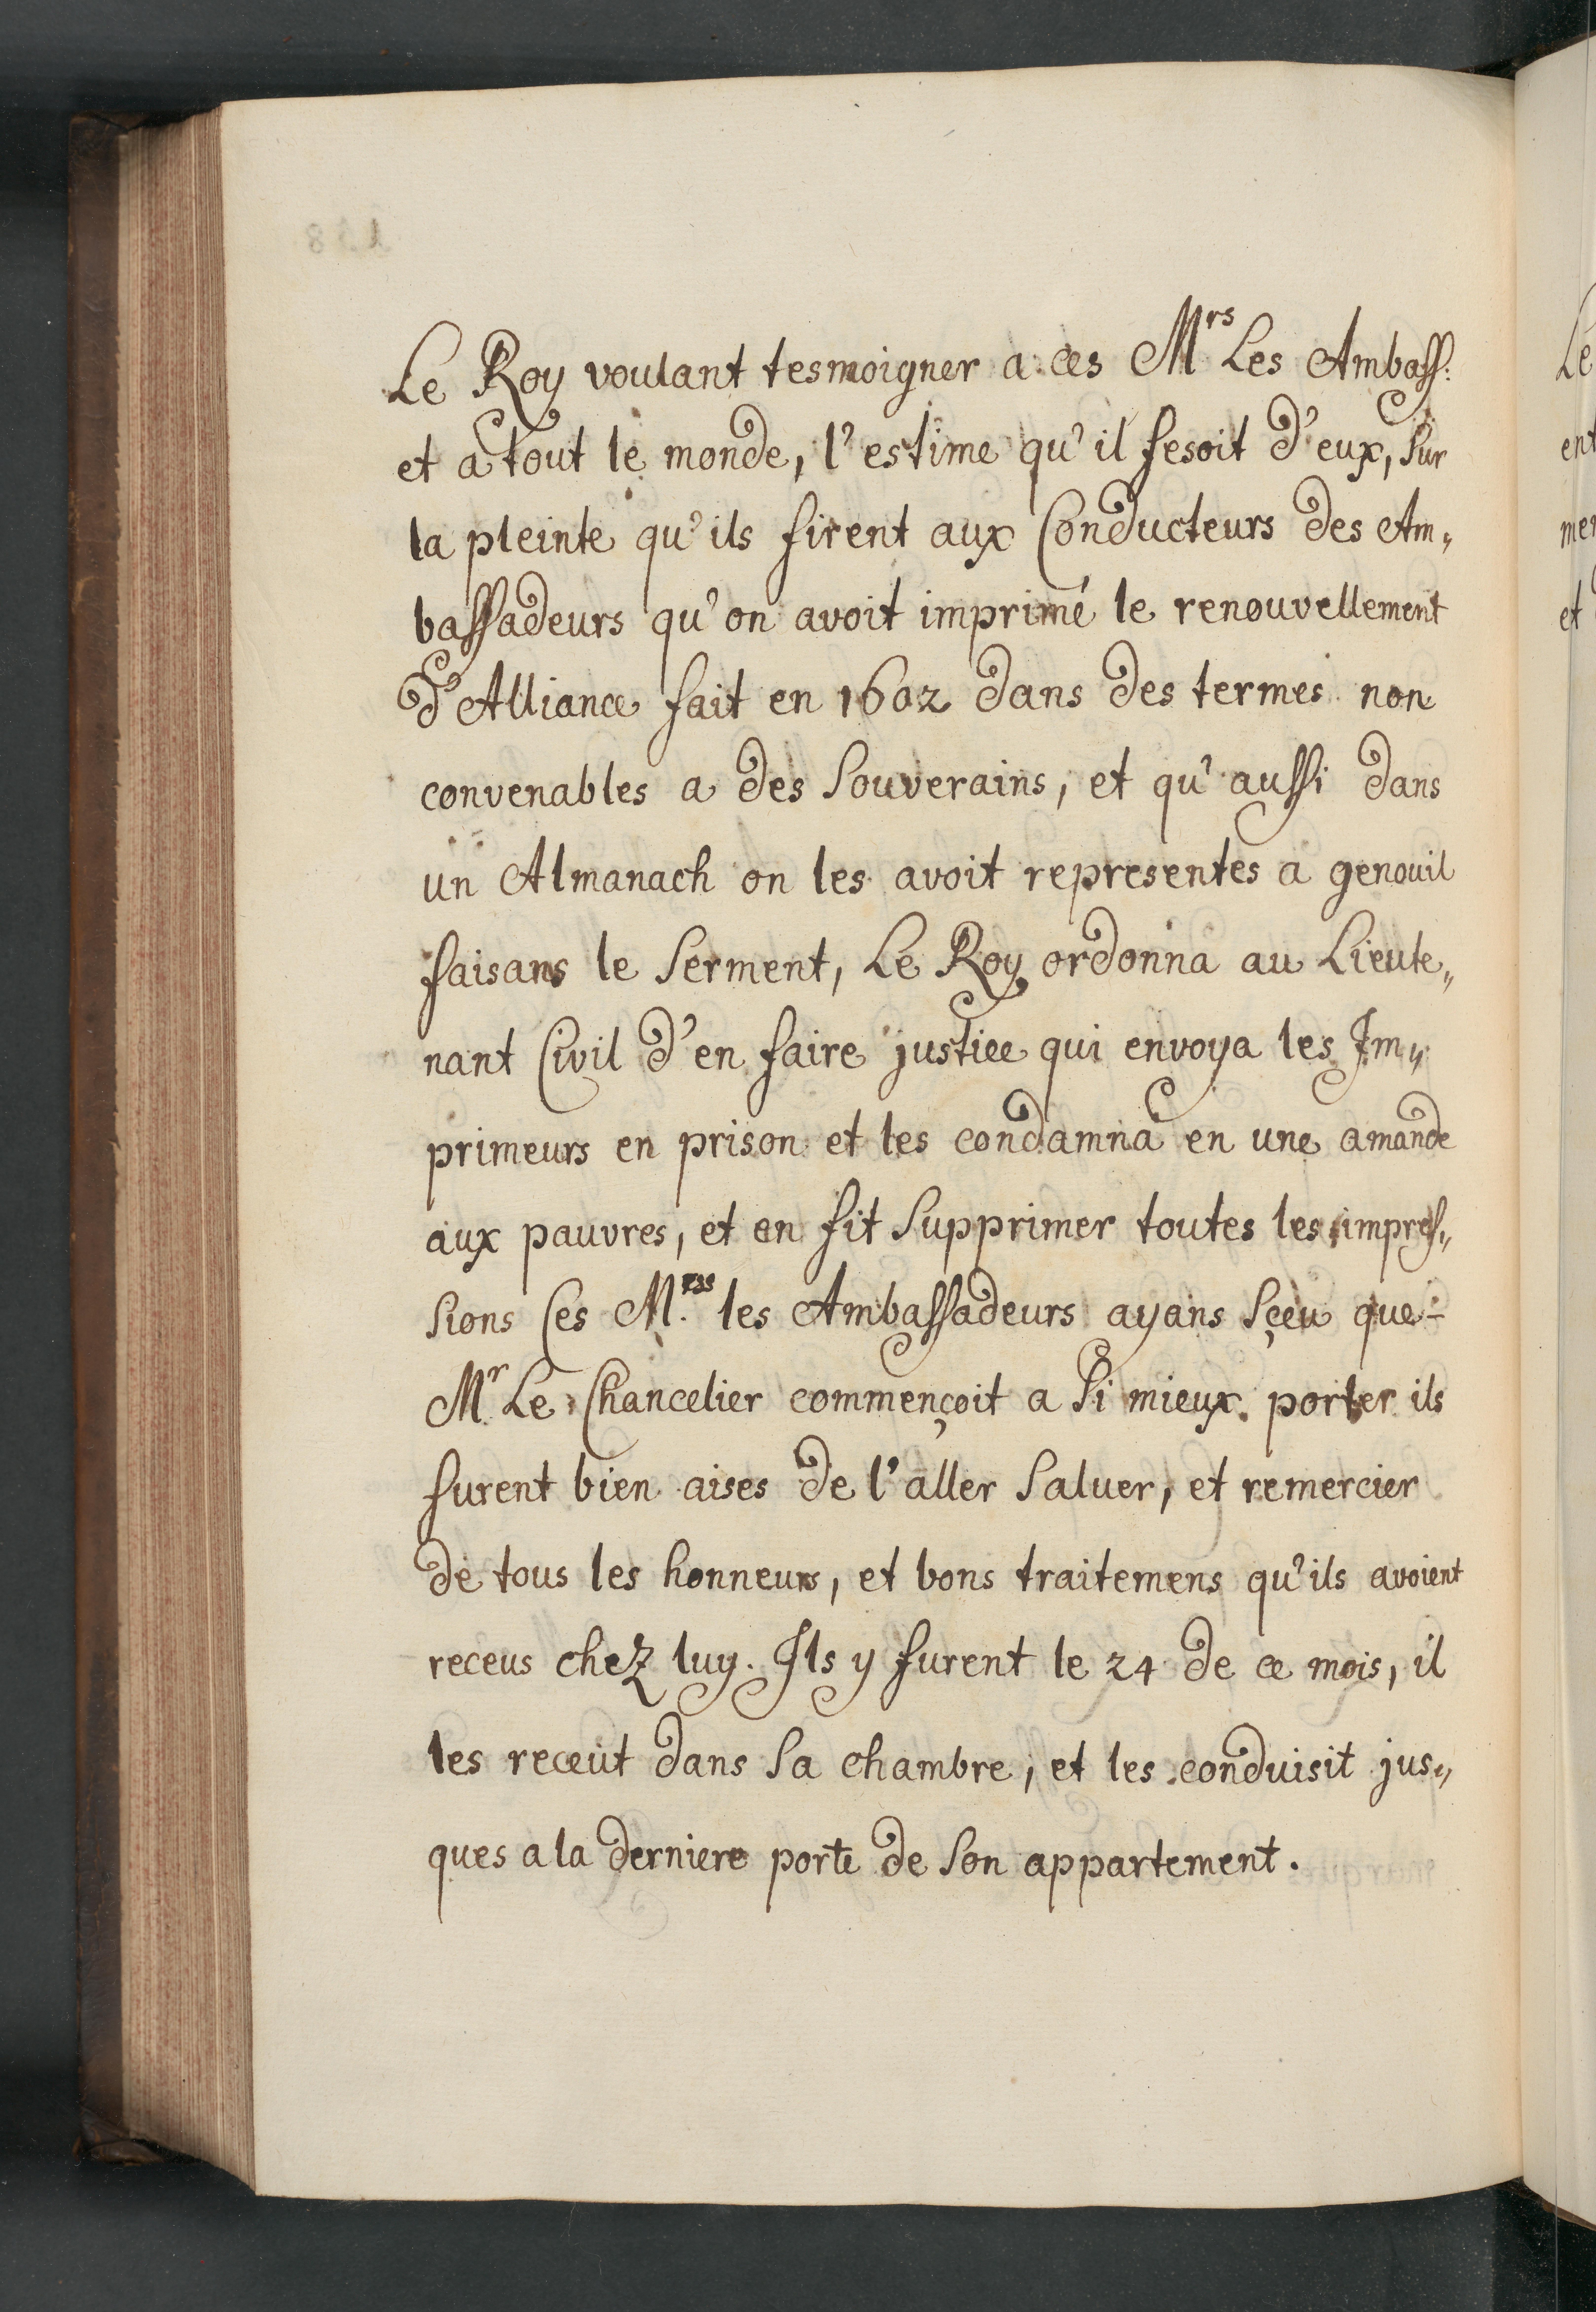 Le Roy voulant tesmoigner a ces Mrs Les Ambass:
et a tout le monde, l'estime qu'il fesoit d'eux, sur
la pleinte qu'ils firent aux Conducteurs des Am„
bassadeurs qu'on avoit imprimé le renouvellement
d'Alliance fait en 1602 dans des termes non
convenables a des Souverains, et qu'aussi dans
un Almanach on les avoit representes a genouil
faisans le Serment, Le Roy ordonna au Lieute„
nant Civil d'en faire justice qui envoya les Im„
primeurs en prison et les condamna en une amande
aux pauvres, et en fit Supprimer toutes les impres„
sions Ces M.rs les Ambassadeurs ayans Sçeu que
Mr Le Chancelier commençoit a Si mieux porter ils
furent bien aises de l'aller Saluer, et remercier
de tous les honneurs, et bons traitemens qu'ils avoient
receus chez luy. Ils y furent le 24 de ce mois, il
les receut dans Sa chambre, et les conduisit jus„
ques a la derniere porte de Son appartement.
Le
ent
mer
et